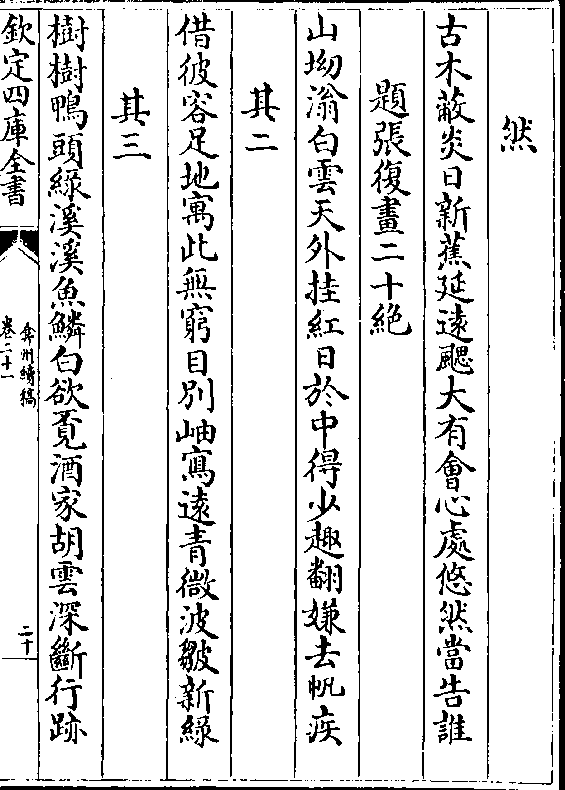 然
古木蔽炎日新蕉延遠颸大有會心處悠然當告誰
題張復畫二十絶
山坳滃白雲天外挂紅日於中得少趣翻嫌去帆疾
其二
借彼容足地寓此無窮目別岫寫遠青微波皺新緑
其三
樹樹鴨頭緑溪溪魚鱗白欲覔酒家胡雲深斷行跡
欽定四庫全書
弇州續稿
卷二十一
二十